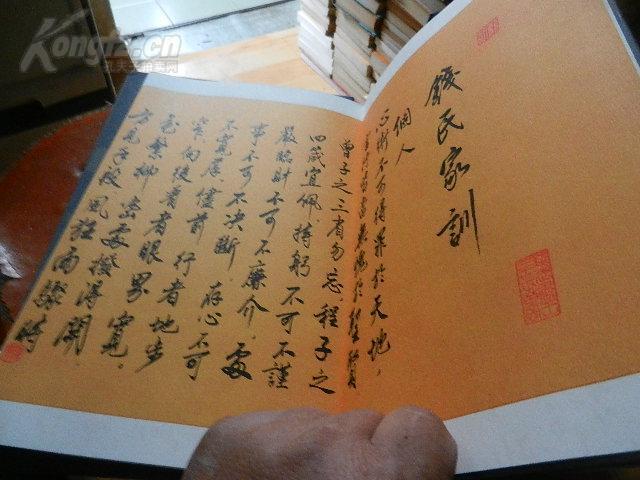 Kongfz.cn
錢氏家訓
個人
心術不可得罪於天地，
言行皆當無愧於聖賢
曾子之三省勿忘．程子之
四箴宜佩持躬不可不謹
嚴臨財不可不廉介．處
事不可不决斷．存心不可
不寬厚儘前行者地步
窄向後看者眼界寬．
花繁柳密處撥得開
方見手段風狂雨驟時